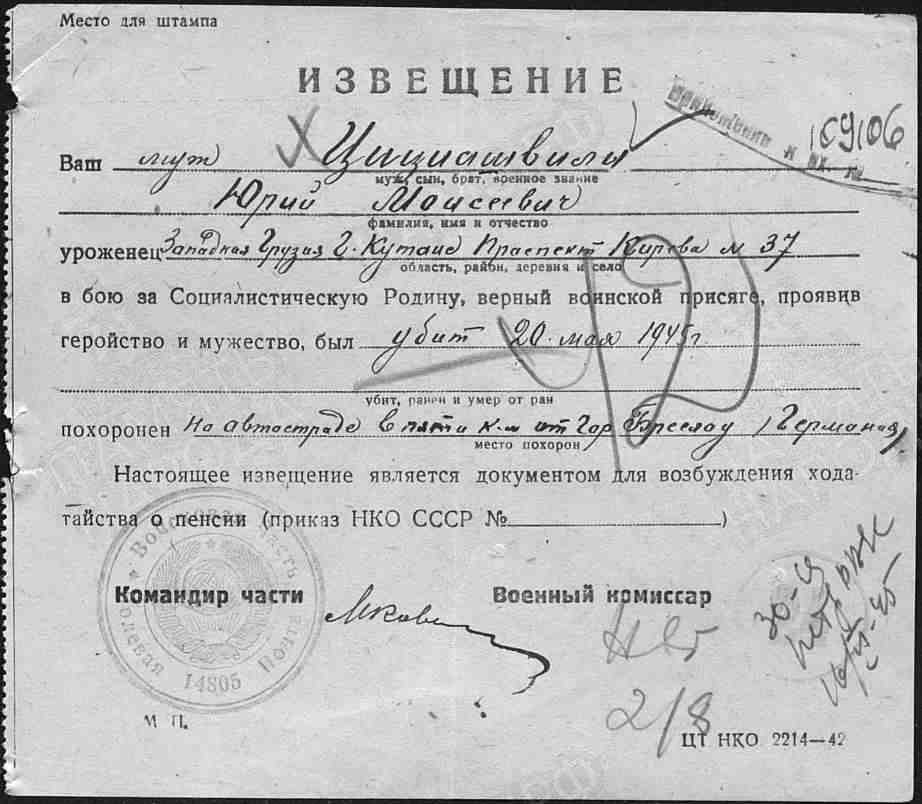 Место для штампа
ИЗВЕЩЕНИЕ
159106
Ваш муж Цициашвили
муж, сын, брат, военное звание
Юрий Моисеевич
фамилия, имя и отчество
уроженец Западная Грузия г. Кутаис Проспект Кирова № 37
область, район, деревня и село
в бою за Социалистическую Родину, верный воинской присяге, проявив
геройство и мужество, был убит 20 мая 1945 г.
убит, ранен и умер от ран
похоронен на автостраде в пяти к-м от гор Бреслау /Германия/
место похорон
Настоящее извещение является документом для возбуждения хода-
тайства о пенсии (приказ НКО СССР № )
Войсковая часть
Полевая Почта
14805
Командир части Военный комиссар
2/8
М П.
ЦТ НКО 2214—42